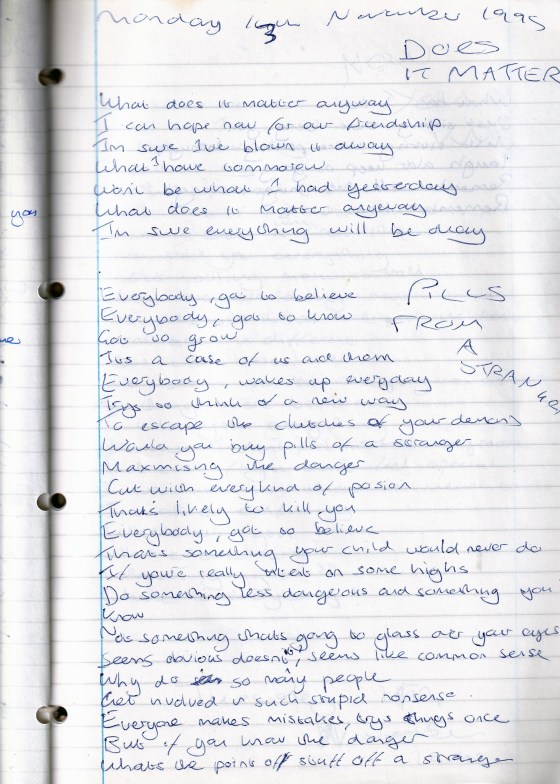 Monday 13th November 1995
DOES
IT MATTER
What does it matter anyway
I can hope now for our friendship
Im sure I've blown it away
What I have tommorow
Won't be what I had yesterday
you
What does it matter anyway
I'm sure everything will be okay
Everybody, got to believe
PILLS
Everybody, got to know
FROM
Got to grow
A
Its a case of us and them
STRANGE
Everybody, wakes up everyday
Trys to think of a new way
To escape the clutches of your demons
Would you buy pills of a stranger
Maximising the danger
Cut with everykind of posion
Thats likely to kill you
Everybody, got to believe
Thats something your child would never do
If you're really intent on some highs
Do something less dangerous and something you
know
Not something thats going to glass over your eyes
Seems obvious doesnt it, seems like common sense
Why do so many people
Get involved in such stupid nonsense.
Everyone makes mistakes, trys things once
But if you know the danger
Whats the point of stuff off a stranger